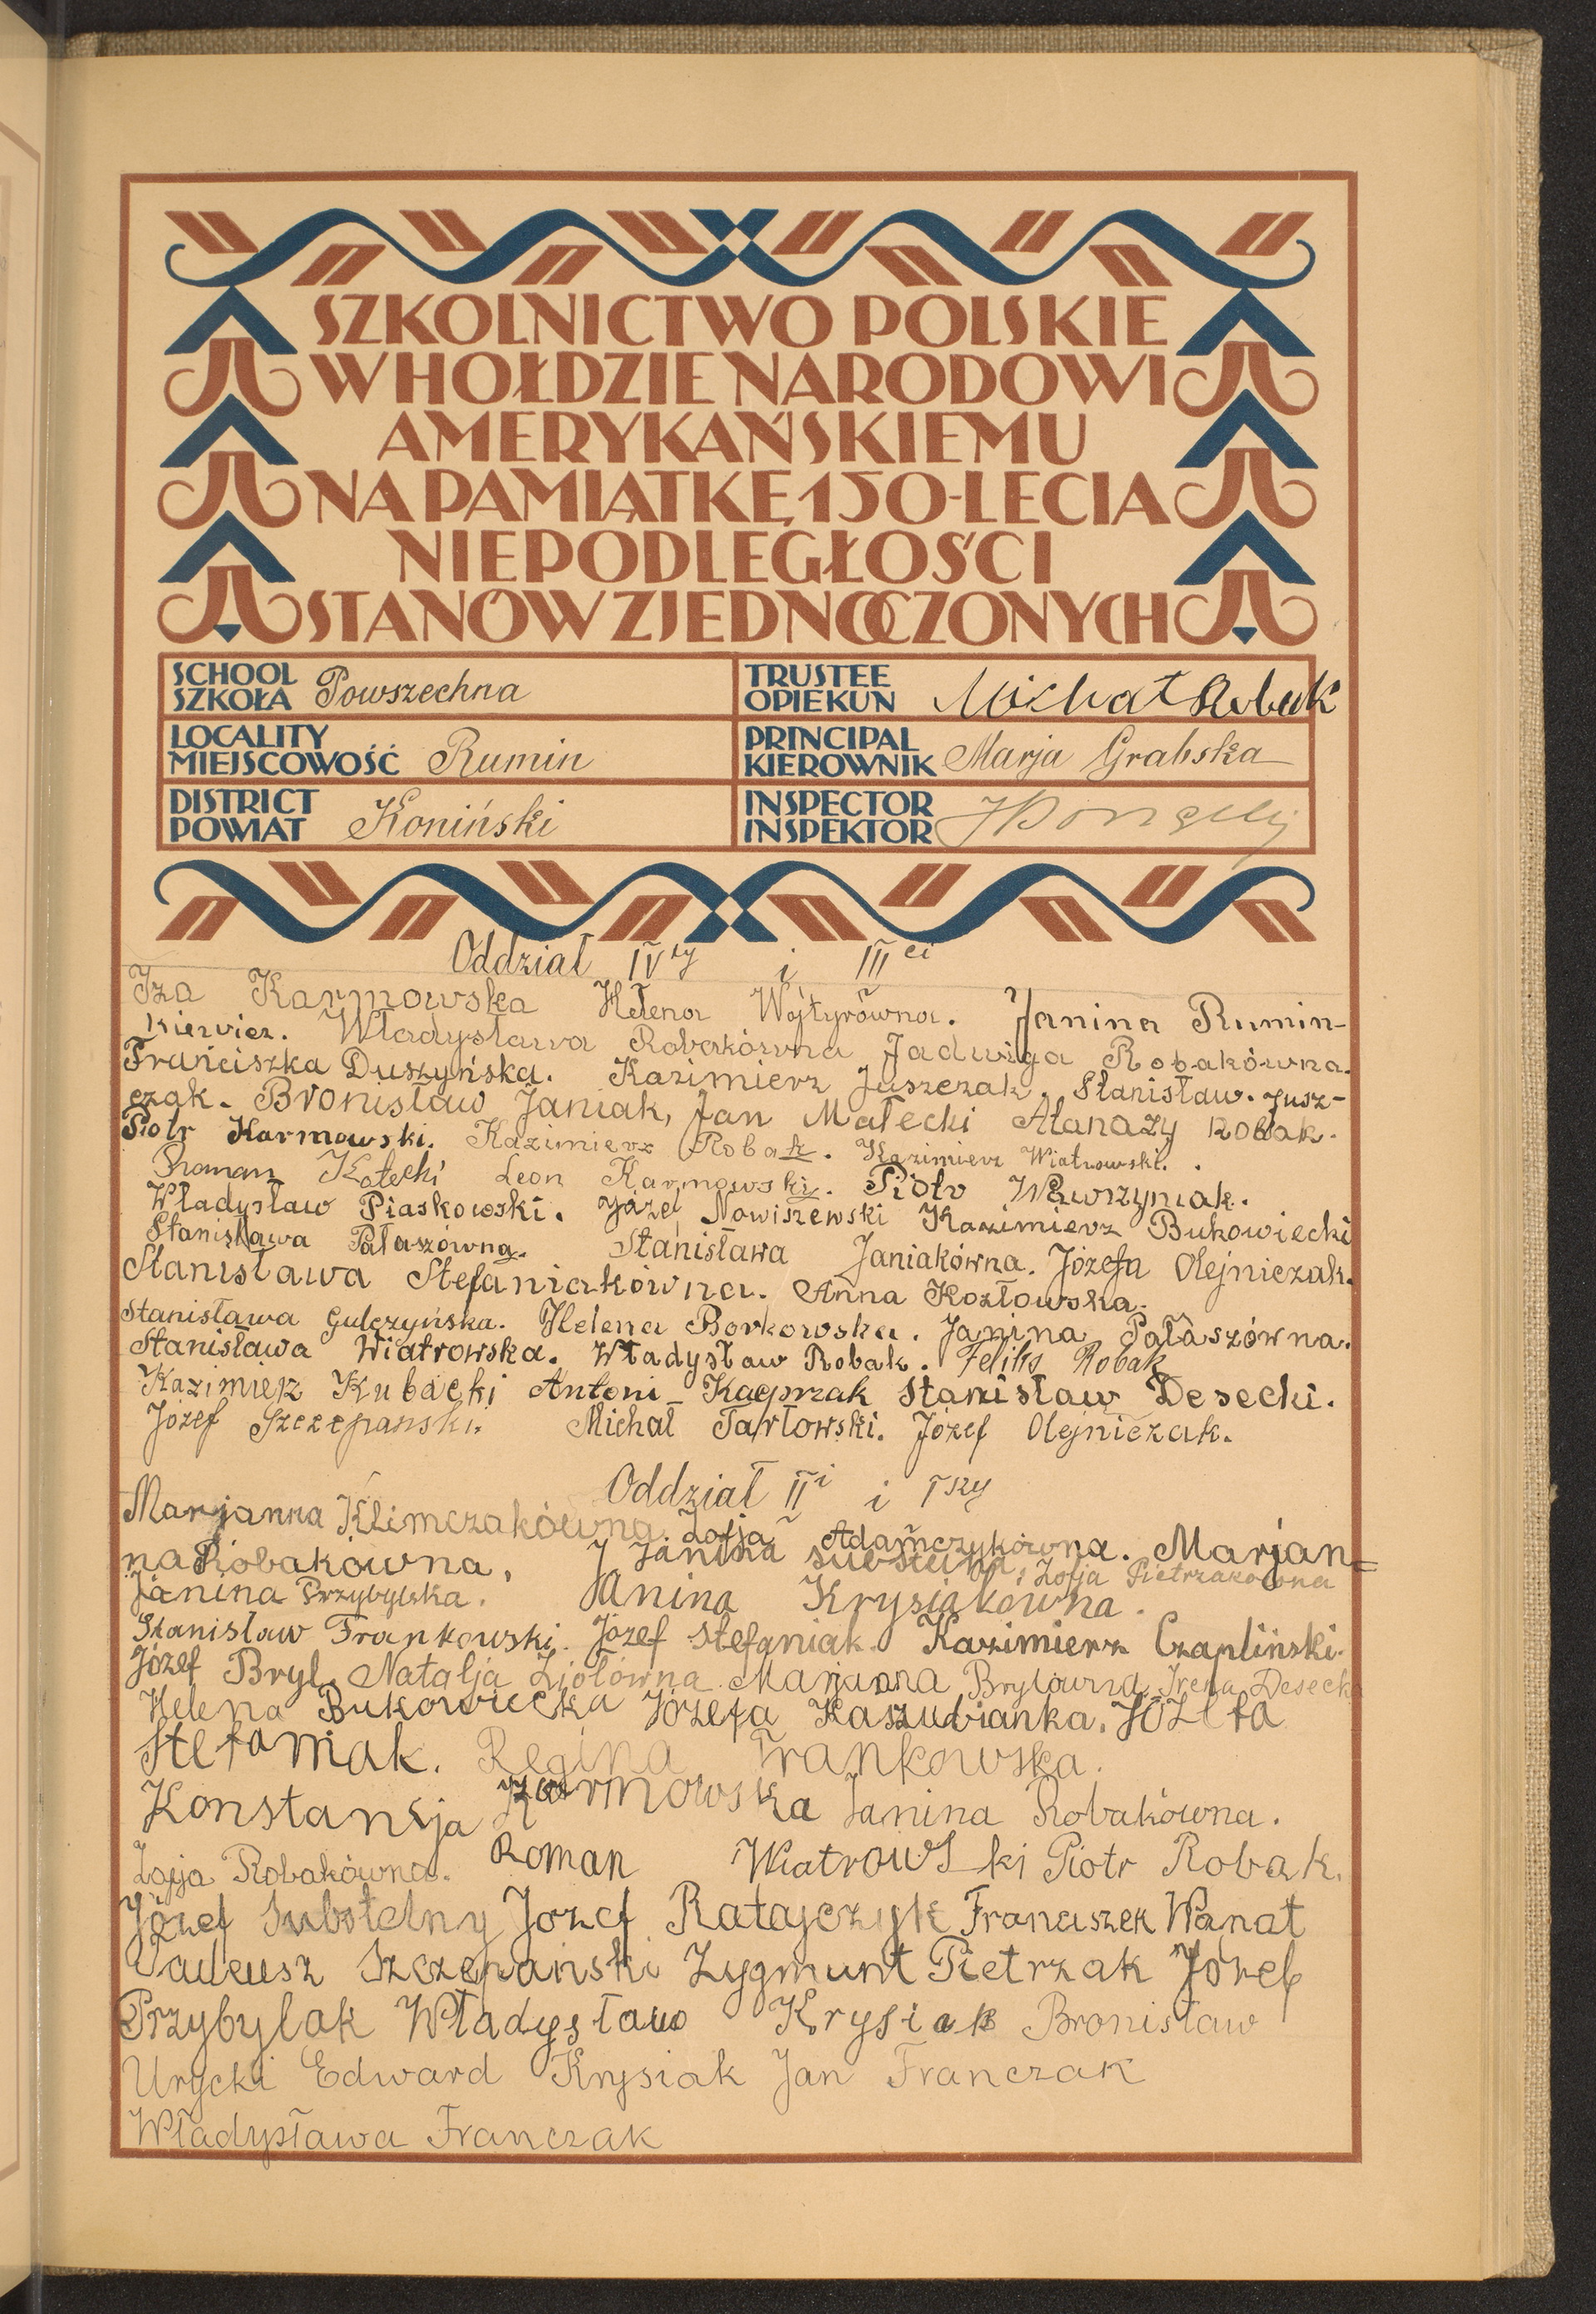 SZKOLNICTWO POLSKIE
W HOŁDZIE NARODOWI
AMERYKAŃSKIEMU
NA PAMIĄTKĘ 150-LECIA
NIEPODLEGŁOŚCI
STANÓW ZJEDNOCZONYCH
SCHOOL
SZKOŁA Powszechna
TRUSTEE
OPIEKUN Michał Robak
LOCALITY
MIEJSCOWOŚĆ Rumin
PRINCIPAL
KIEROWNIK Marja Grabska
DISTRICT
POWIAT Koniński
INSPECTOR
INSPEKTOR
Oddział IVty i IIIci
Iza Karmowska Helena Wojtyrówna. Janina Rumin-
kiewicz. Władysława Robakówna Jadwiga Robakówna.
Franciszka Duszyńska. Kazimierz Juszczak. Stanisław. Jusz-
czak. Bronisław Janiak, Jan Małecki Atanazy Robak.
Piotr Karmowski. Kazimierz Robak. Kazimierz Wiatrowski.
Roman Kotecki Leon Karmowski. Piotr Wawrzyniak.
Władysław Piaskowski. Józef Nowiszewski Kazimierz Bukowiecki
Stanisława Pałaszówna. Stanisława Janiakówna. Józefa Olejniczak.
Stanisława Stefaniakówna. Anna Kozłowska.
Stanisława Gulczyńska. Helena Borkowska. Janina Pałaszówna.
Stanisława Wiatrowska. Władysław Robak. Feliks Robak
Kazimierz Kubacki Antoni Kacprzak Stanisław Desecki.
Józef Szczepański. Michał Tarłowski. Józef Olejniczak.
Oddział IIi i Iszy
Marjanna Klimczakówna. Zofja Adamczykówna. Marjan=
na Robakówna, Janina Zofja Pietrzakówna
Janina Przybylska. Janina Krysiakówna.
Stanisław Frankowski. Józef Stefaniak. Kazimierz Czapliński.
Józef Bryl. Natalja Ziółówna Marjanna Brylówna, Irena Desecka
Helena Bukowiecka Józefa Kaszubianka. Józefa
Stefaniak. Regina Frankowska.
Konstancja Karmowska Janina Robakówna.
Zofja Robakówna. Roman Wiatrowski Piotr Robak.
Józef Subotelny Józef Ratajczyk Franciszek Wanat
Tadeusz Szczepański Zygmunt Pietrzak Józef
Przybylak Władysław Krysiak Bronisław
Urycki Edward Krysiak Jan Franczak
Władysława Franczak